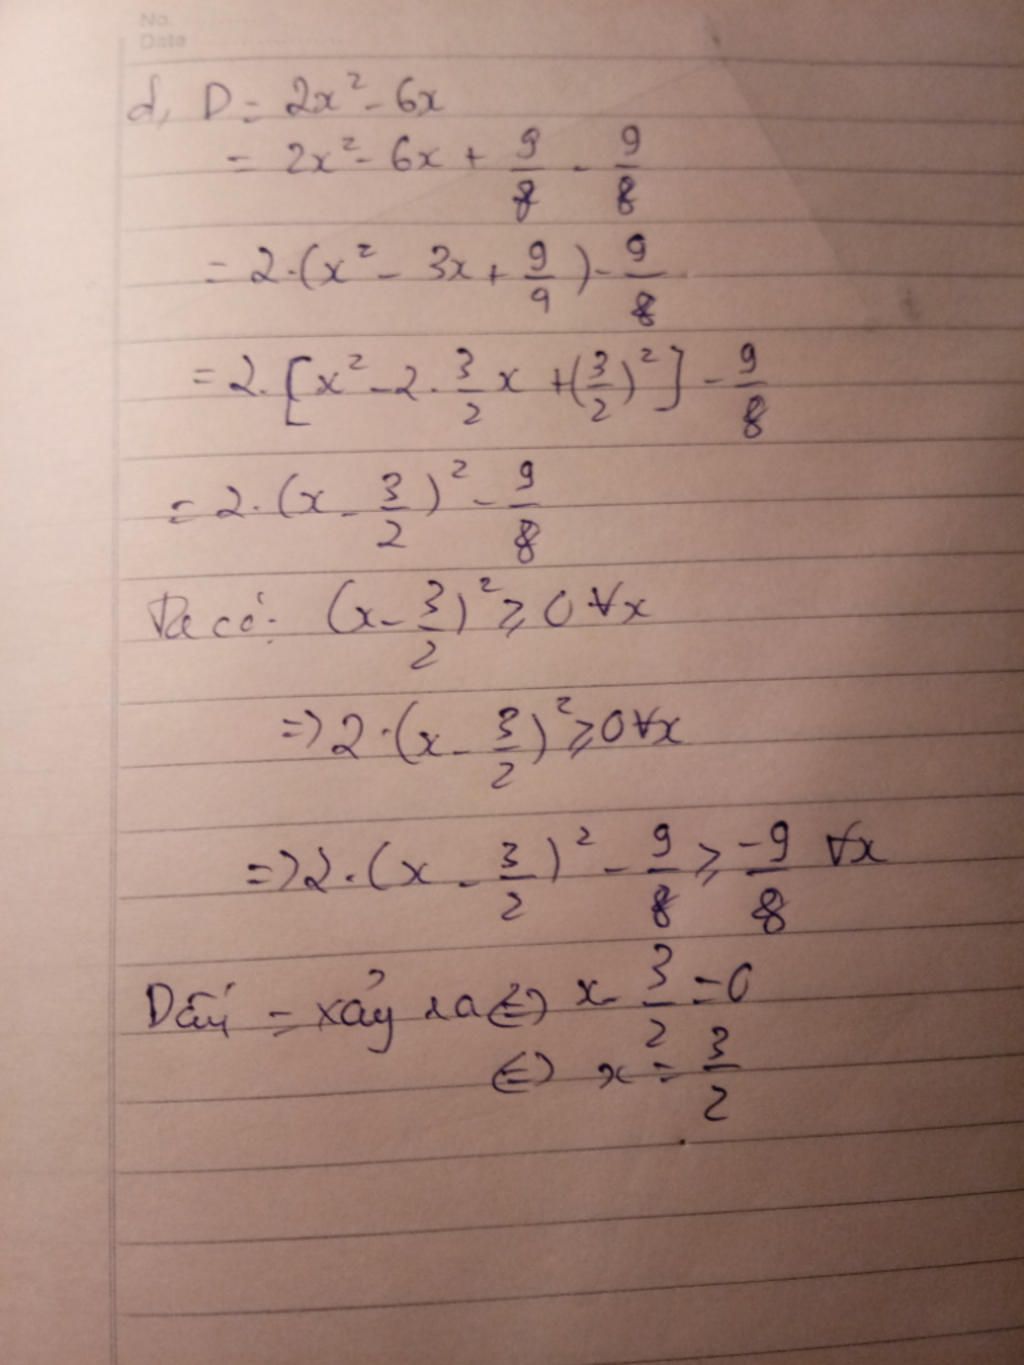 No.
Date
d, D = 2x² - 6x
= 2x² - 6x + 9/8 - 9/8
= 2.(x² - 3x + 9/9) - 9/8
= 2.[x² - 2.3/2x + (3/2)²] - 9/8
= 2.(x - 3/2)² - 9/8
Ta có: (x - 3/2)² ≥ 0 ∀x
=> 2.(x - 3/2)² ≥ 0 ∀x
=> 2.(x - 3/2)² - 9/8 ≥ -9/8 ∀x
Dấu = xảy ra <=> x - 3/2 = 0
<=> x = 3/2